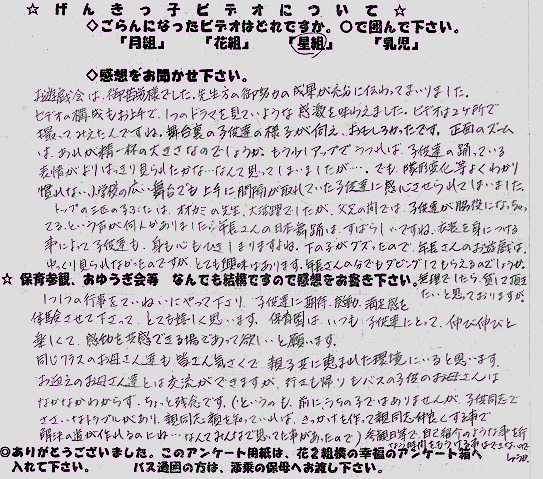 ☆ げんきっ子ビデオについて ☆
◇ごらんになったビデオはどれですか。○で囲んで下さい。
「月組」 「花組」 「星組」 「乳児」
◇感想をお聞かせ下さい。
お遊戯会は、御苦労様でした。先生方の御努力の成果が充分に伝わってまいりました。
ビデオの構成もお上手で、1つのドラマを見ているような感激を味わえました。ビデオは2ヶ所で
撮ってみえたんですね。舞台裏の子供達の様子が伺え、おもしろかったです。正面のズーム
は、あれが精一杯の大きさなのでしょうか。もう少しアップでうつれば、子供達の踊っている
表情がよりはっきり見られたかな…なんて思ってしまいましたが…。でも、隊形変化等よくわかり
慣れない小学校の広い舞台でも上手に間隔が取れていた子供達に感心させられてしまいました。
トップの三匹の子ぶたは、オオカミの先生、大活躍でしたが、父兄の間では、子供達が脇役になっちゃっ
てる、という声が何人かありました。年長さんの日本舞踊は、すばらしいですね。衣装を身につける
事によって子供達も、身も心もひきしまりますよね。下の子がグズったので、年長さんのお遊戯は、
ゆっくり見られなかったのですが、とても興味はあります。年長さんの分でもダビングしてもらえるのでしょうか。
☆ 保育参観、おゆうぎ会等 なんでも結構ですので感想をお書き下さい。
実現でしたら、貸して頂き
たいと思っておりますが。
1つ1つの行事をていねいにやって下さり、子供達に期待、感動、満足感を
体験させて下さって、とても嬉しく思います。保育園は、いつも子供達にとって、伸び伸びと
楽しくて、感動を共感できる場であって欲しいと願います。
同じクラスのお母さん達も皆さん気さくで、親子共に恵まれた環境にいると思います。
お迎えのお母さん達とは交流ができますが、行きも帰りもバスの子供のお母さんは
なかなかわからず、ちょっと残念です。(というのも、前に、うちの子ではありませんが、子供同志で
ささいなトラブルがあり、親同志顔を知っていれば、きっかけを作って親同志仲良くする事で
解決の道が作れるのにね…なんてみんなで思っていた事があったので)参観日等で、自己紹介のような事を行
なう時間をもうける事はできないので
しょうか。
◎ありがとうございました。このアンケート用紙は、花2組横の幸福のアンケート箱へ
入れて下さい。 バス通園の方は、添乗の保母へお渡し下さい。